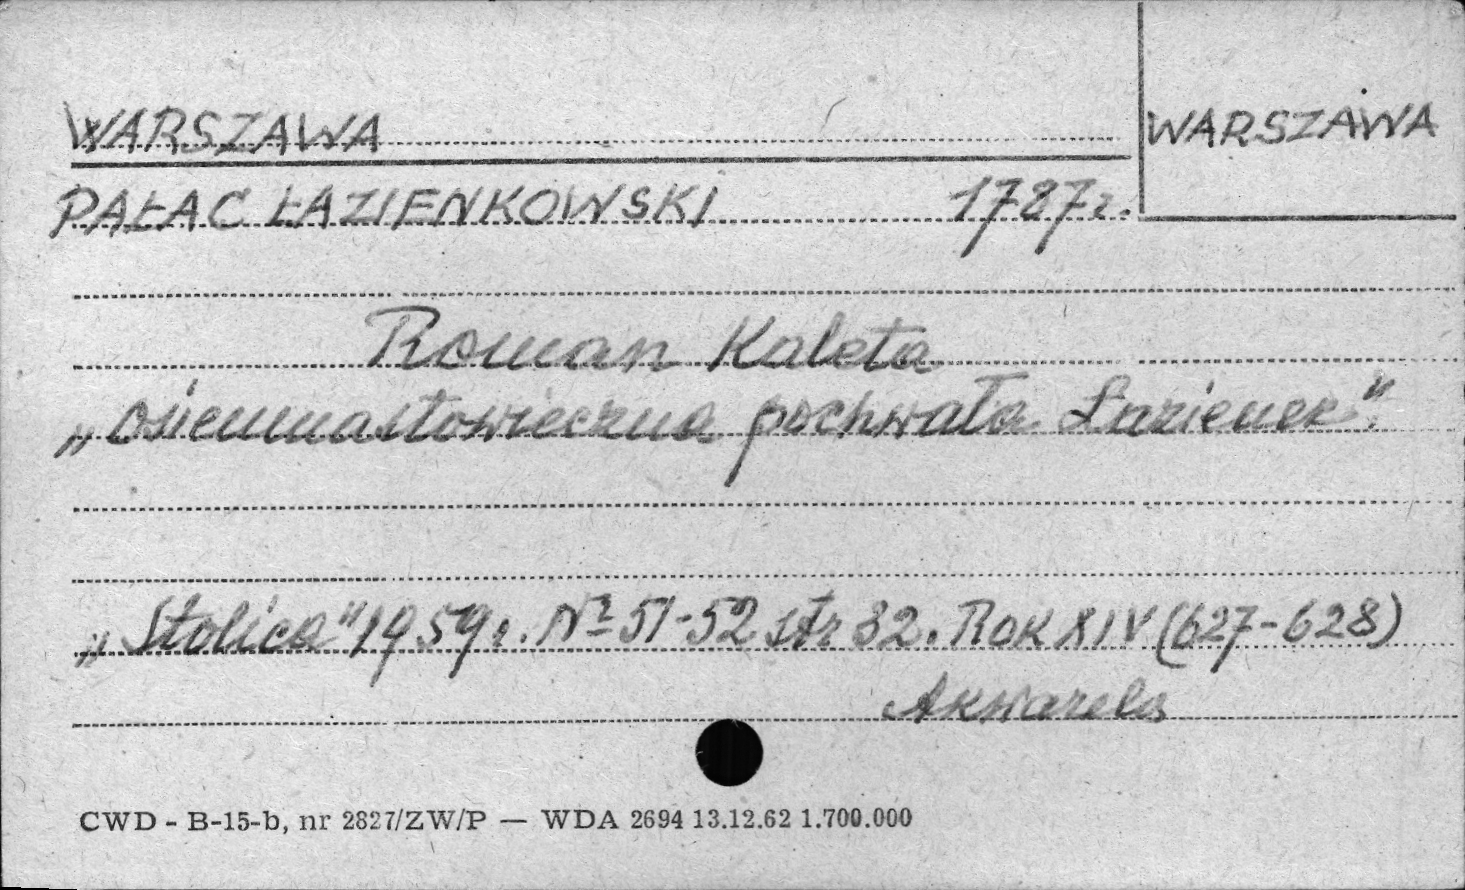 WARSZAWA
WARSZAWA
PAŁAC ŁAZIENKOWSKI 1787r.
Roman Kaleta
„Osiemnastowieczna pochwała Łazienek".
„Stolica" 1959r. № 51-52 str 32. ROK XIV (627-628)
Akwarela
CWD - B-15-b, nr 2827/ZW/P — WDA 2694 13.12.62 1.700.000